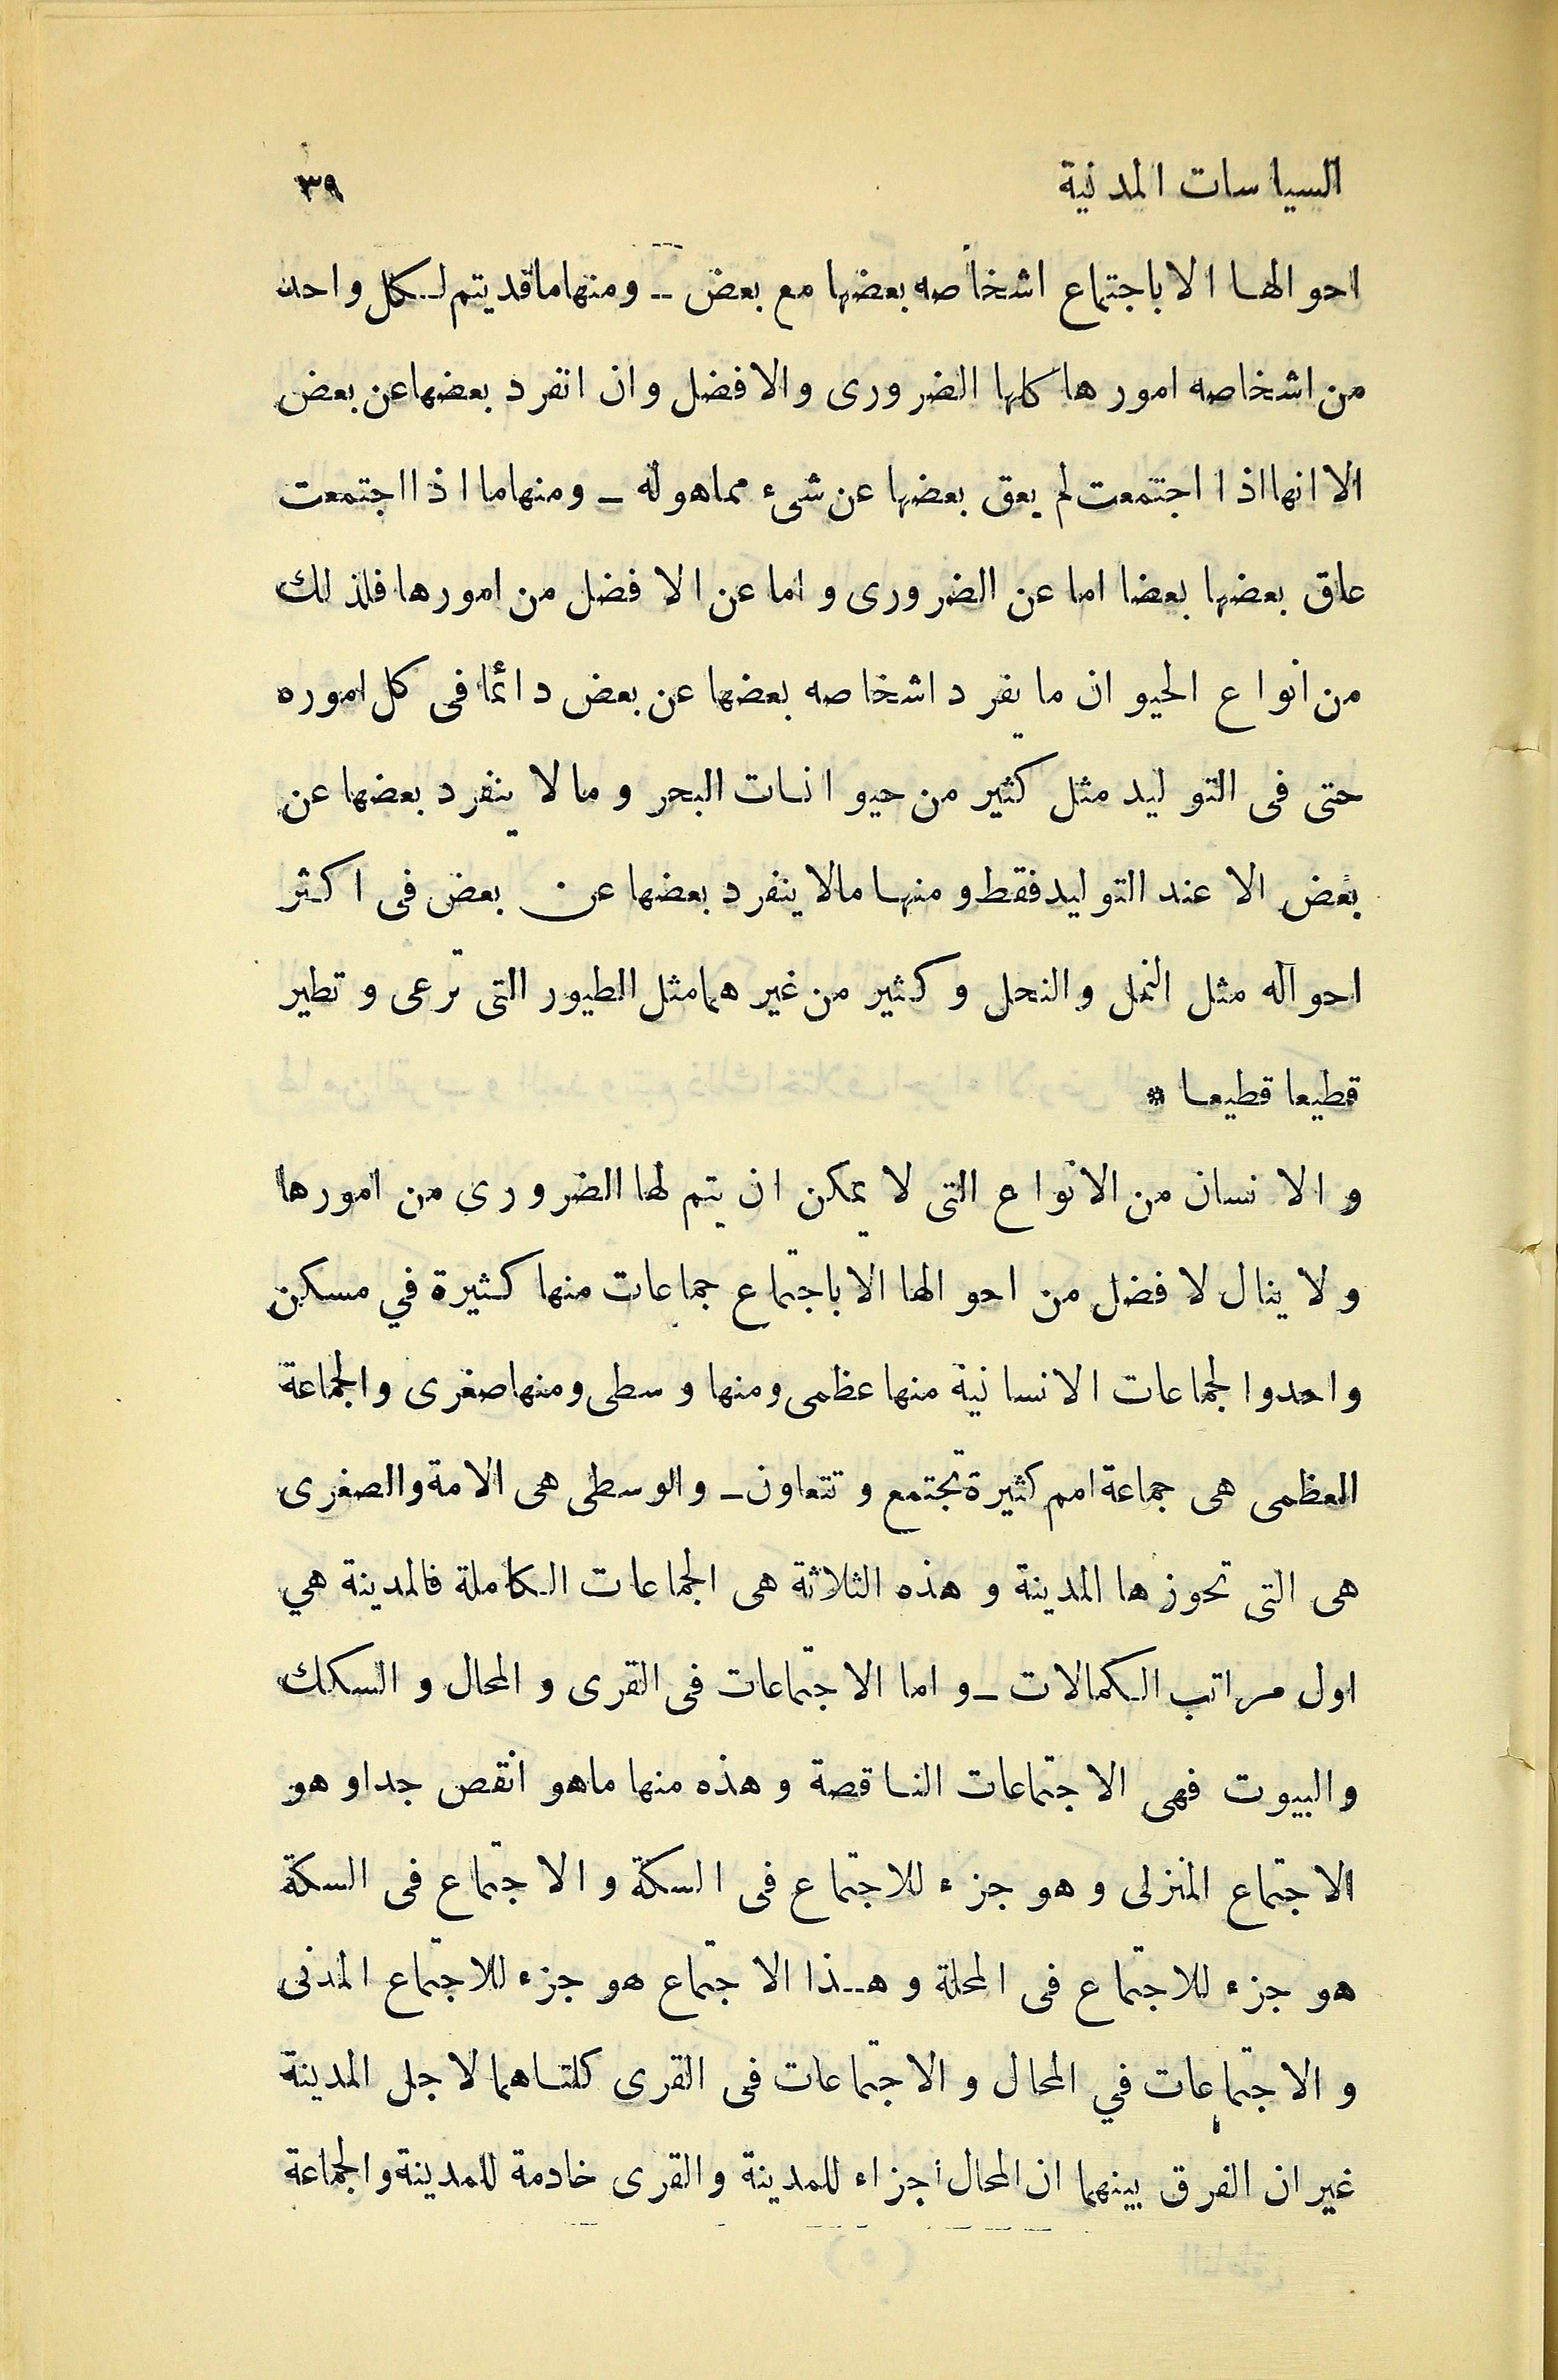 السياسات المدنية ٣٩
احوالها الا باجتماع اشخاصه بعضها مع بعض ــ ومنها ما قد يتم لكل واحد
من اشخاصه امورها كلها الضرورى والافضل وان انفرد بعضها عن بعض
الا انها اذا اجتمعت لم يعق بعضها عن شىء مما هو له ــ ومنها ما اذا اجتمعت
عاق بعضها بعضا اما عن الضرورى واما عن الافضل من امورها فلذلك
من انواع الحيوان ما يفرد اشخاصه بعضها عن بعض دائما فى كل اموره
حتى فى التوليد مثل كثير من حيوانات البحر وما لا ينفرد بعضها عن
بعض الا عند التوليد فقط ومنها مالا ينفرد بعضها عن بعض فى اكثر
احواله مثل النمل والنحل وكثير من غيرهما مثل الطيور التى ترعى وتطير
قطيعا قطيعا *
والانسان من الانواع التى لا يمكن ان يتم لها الضروري من امورها
ولا ينال لافضل من احوالها الا باجتماع جماعات منها كثيرة في مسكن
واحدوا لجماعات الانسانية منها عظمى ومنها وسطى ومنها صغرى والجماعة
العظمى هى جماعة امم كثيرة تجتمع وتتعاون ــ والوسطى هى الامة والصغرى
هى التى تحوزها المدينة وهذه الثلاثة هى الجماعات الكاملة فالمدينة هي
اول مراتب الكمالات ــ واما الاجتماعات فى القرى والمحال والسكك
والبيوت فهى الاجتماعات الناقصة وهذه منها ماهو انقص جدا وهو
الاجتماع المنزلى وهو جزء للاجتماع فى السكة والاجتماع فى السكة
هو جزء للاجتماع فى المحلة وهذا الاجتماع هو جزء للاجتماع المدنى
والاجتماعات في المحال والاجتماعات فى القرى كلتاهما لاجل المدينة
غير ان الفرق بينهما ان المحال أجزاء للمدينة والقرى خادمة للمدينة والجماعة